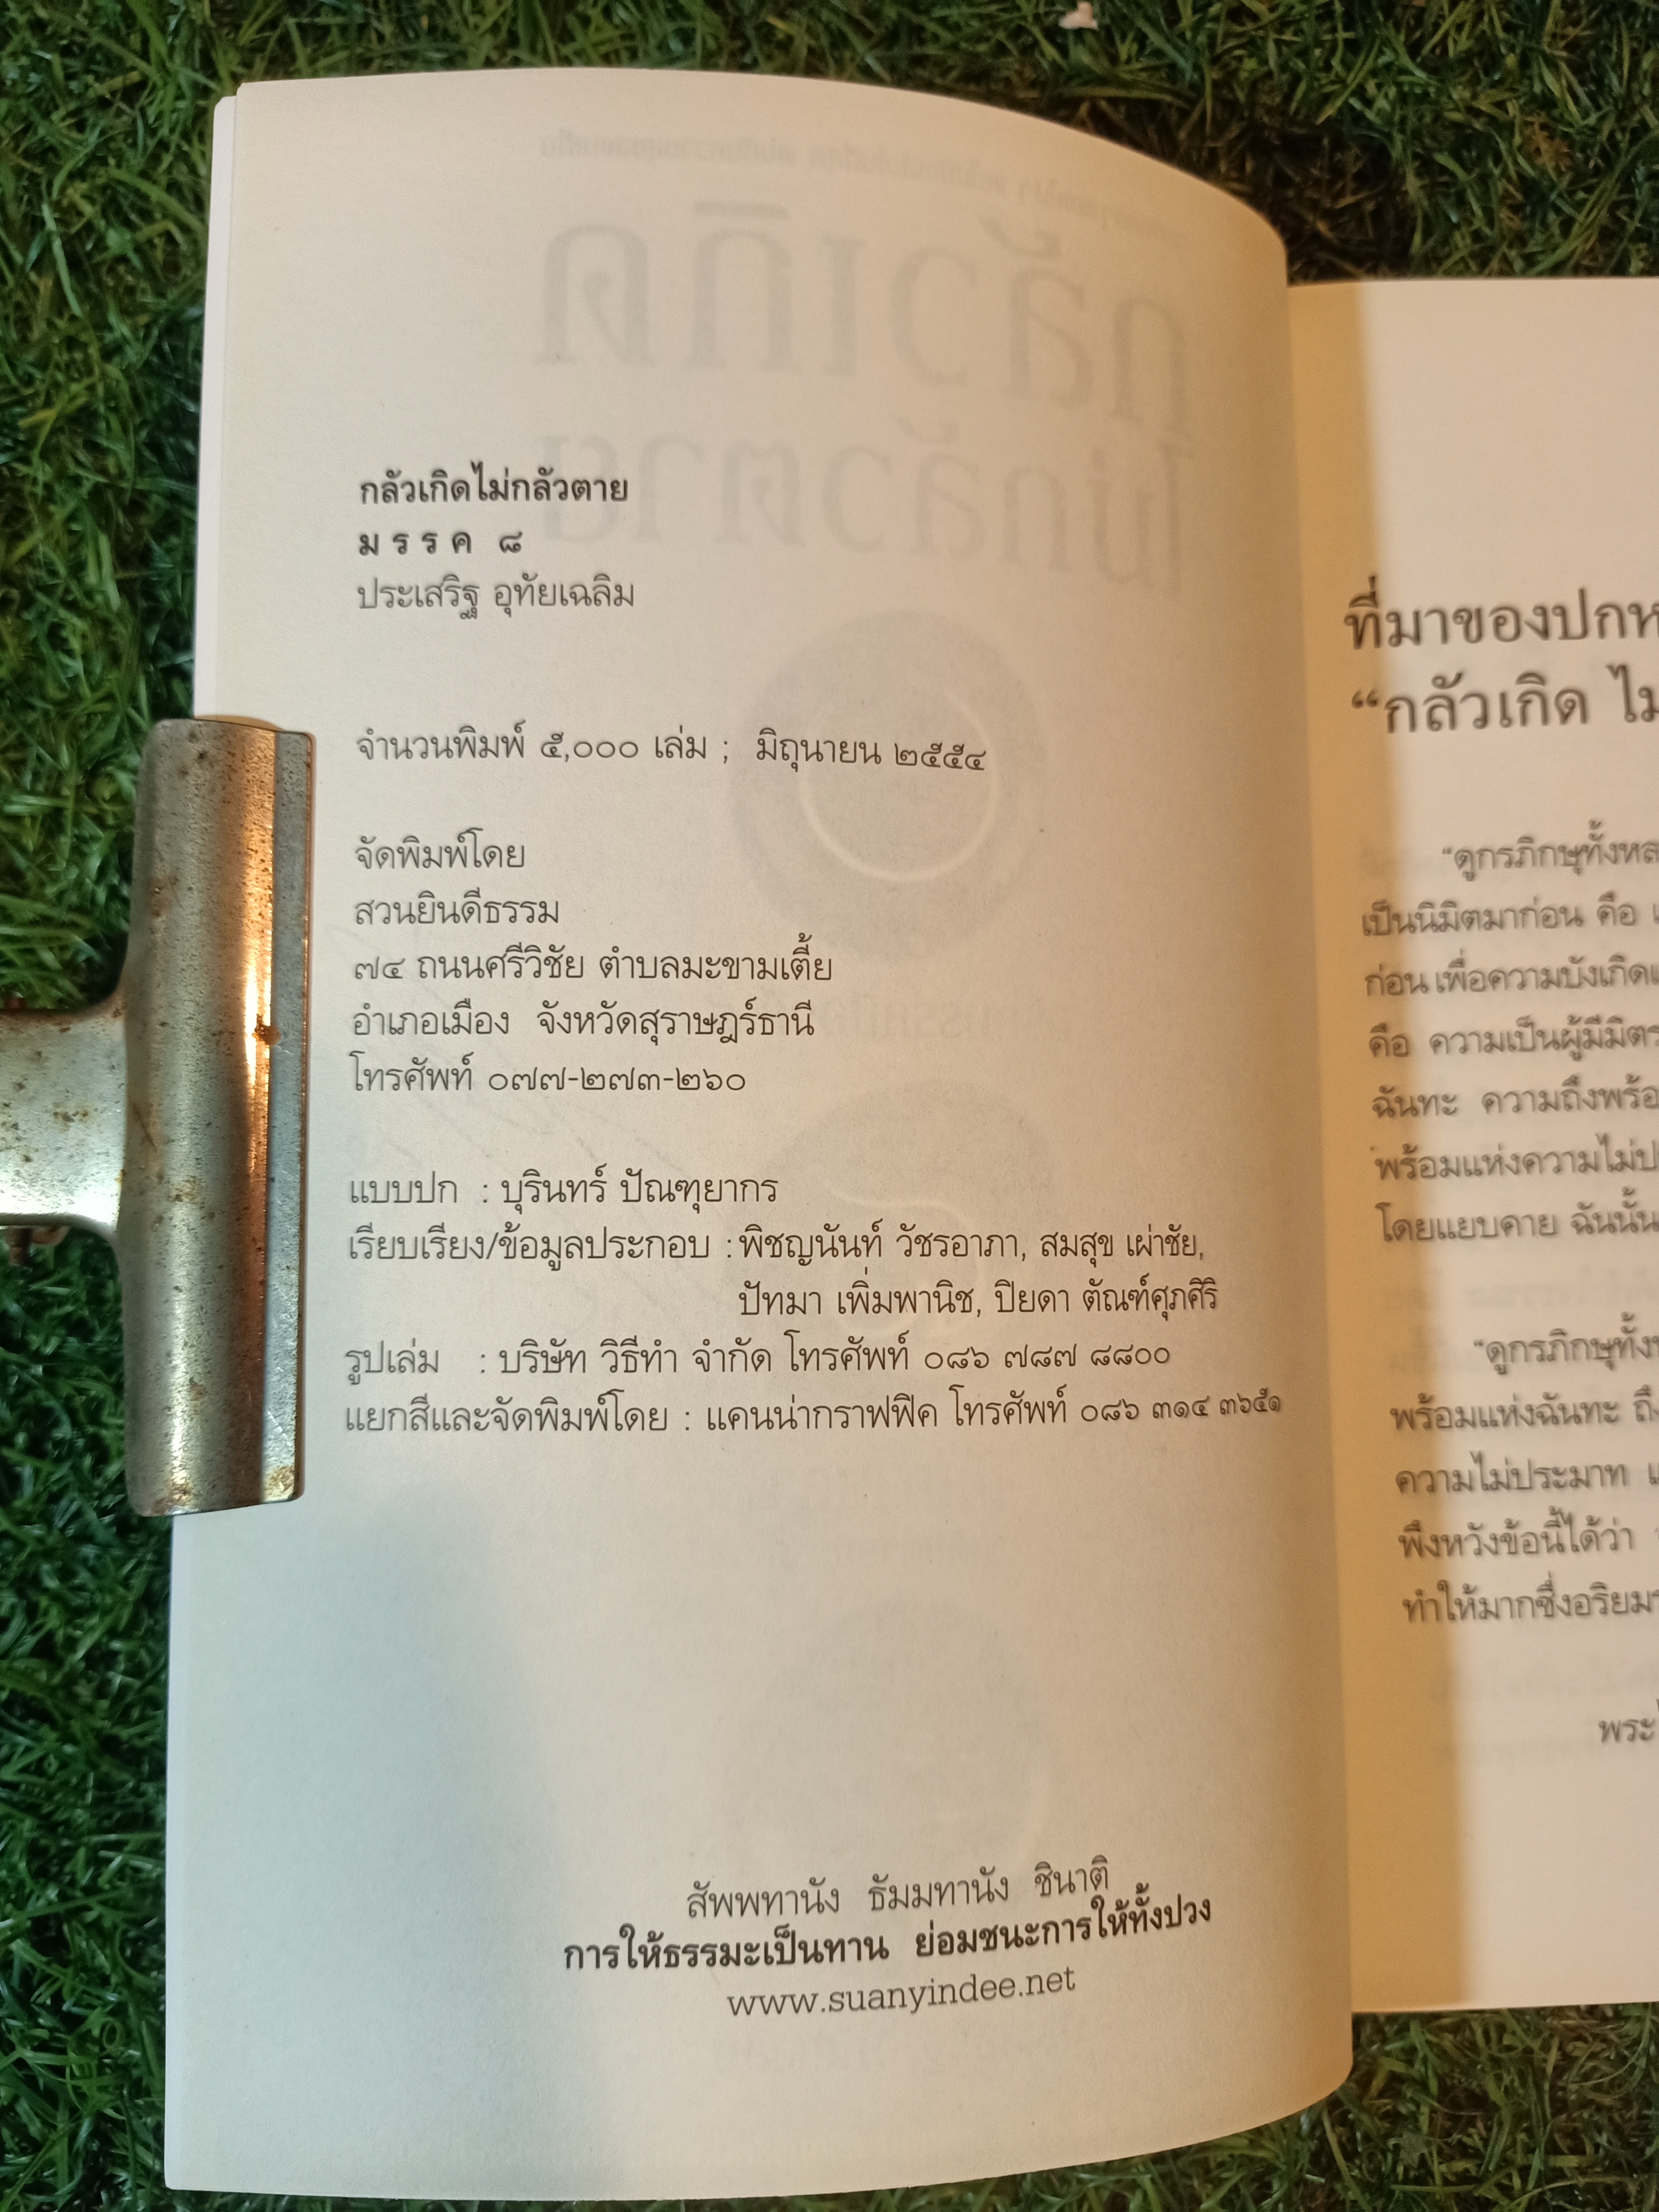 กลัวเกิดไม่กลัวตาย
ม ร ร ค ๘
ประเสริฐ อุทัยเฉลิม
จำนวนพิมพ์ ๕,๐๐๐ เล่ม ; มิถุนายน ๒๕๕๔
จัดพิมพ์โดย
สวนยินดีธรรม
๗๔ ถนนศรีวิชัย ตำบลมะขามเตี้ย
อำเภอเมือง จังหวัดสุราษฎร์ธานี
โทรศัพท์ ๐๗๗-๒๗๓-๒๖๐
แบบปก : บุรินทร์ ปัณฑุยากร
เรียบเรียง/ข้อมูลประกอบ : พิชญนันท์ วัชรอาภา, สมสุข เผ่าชัย,
ปัทมา เพิ่มพานิช, ปิยดา ตัณฑ์ศุภศิริ
รูปเล่ม : บริษัท วิธีทำ จำกัด โทรศัพท์ ๐๘๖ ๗๘๗ ๘๘๐๐
แยกสีและจัดพิมพ์โดย : แคนน่ากราฟฟิค โทรศัพท์ ๐๘๖ ๓๑๔ ๓๖๕๑
สัพพทานัง ธัมมทานัง ชินาติ
การให้ธรรมะเป็นทาน ย่อมชนะการให้ทั้งปวง
www.suanyindee.net
ที่มาของปกห
“กลัวเกิด ไม่
“ดูกรภิกษุทั้งหล
เป็นนิมิตมาก่อน คือ
ก่อน เพื่อความบังเกิด
คือ ความเป็นผู้มีมิตร
ฉันทะ ความถึงพร้อ
พร้อมแห่งความไม่ป
โดยแยบคาย ฉันนั้น
“ดูกรภิกษุทั้งห
พร้อมแห่งฉันทะ ถึ
ความไม่ประมาท
พึงหวังข้อนี้ได้ว่า
ทำให้มากซึ่งอริยม
พระ